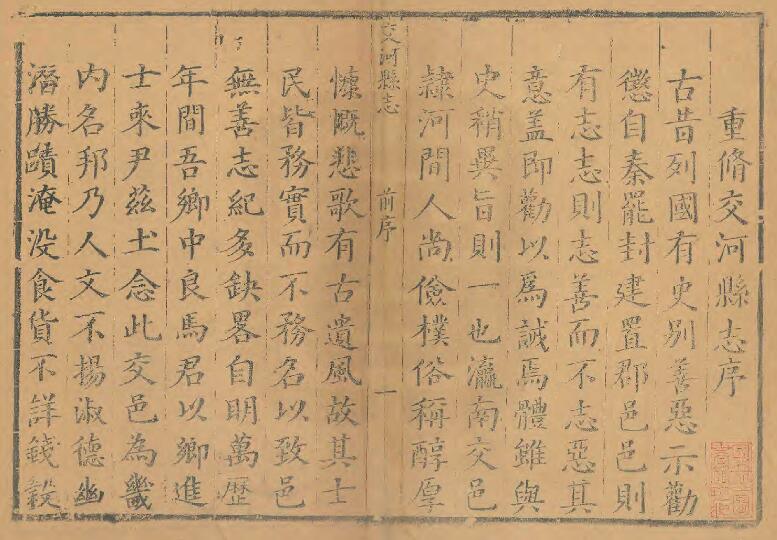 重脩交河縣志序
古昔列國有史別善惡示勸
懲自秦罷封建置郡邑邑則
有志志則志善而不志惡其
意盖即勸以爲誡焉體雖與
史稍異旨則一也瀛南交邑
隷河間人尚儉樸俗稱醇厚
交河縣志
前序
一
慷慨悲歌有古遺風故其士
民皆務實而不務名以致邑
無善志紀多缺畧自明萬歷
年間吾鄉中良馬君以鄉進
士來尹茲土念此交邑為畿
内名邦乃人文不揚淑德幽
潛勝蹟淹没食貨不詳錢穀